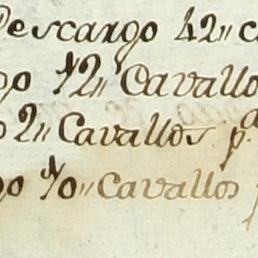 Descargo 42,, c
go 12,, Cavallo
o 2,, Cavallos. p.a
go 70,, Cavallos p